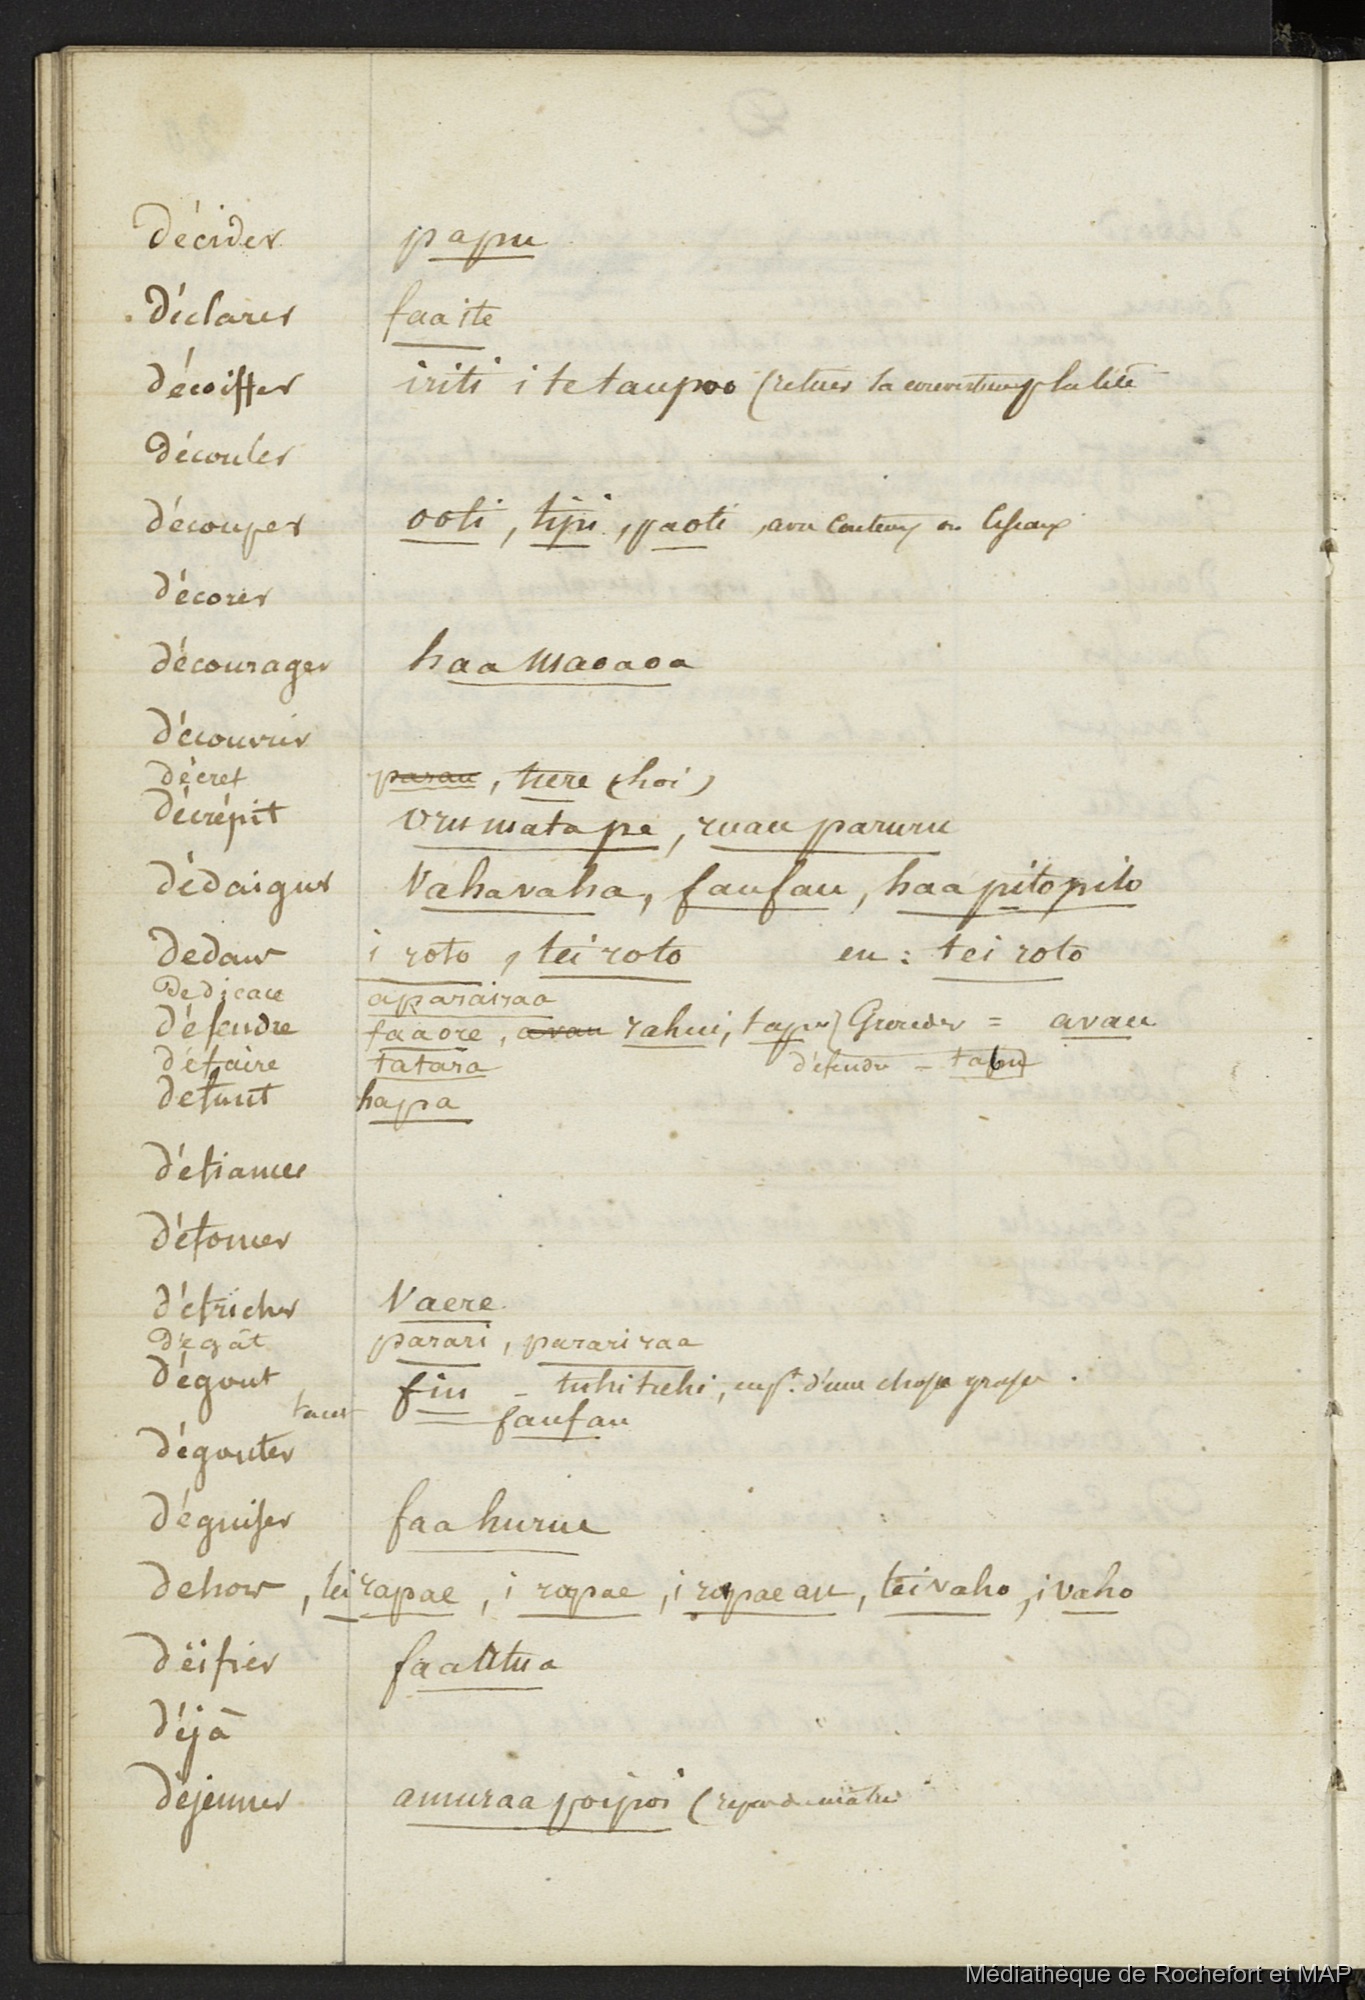 D
décider papu
déclarer faaite
décoiffer iriti i te taupoo (retirer la couverture de la tête
découler
découper ooti, tipi, paoti, avec couteau ou ciseaux
décorer
décourager haa maoaoa
découvrir
décret parau, ture (hoi)
décrépit oru matape, ruau paruru
dédaigner Vahavaha, faufau, haapitopito
dedans i roto, tei roto en: tei roto
Dedicace aparairaa
défendre faaore, avau rahui, tapu) Gronder = avau
défaire tatara défendre - tabu
defunt hapa
défiance
défoncer
défricher Vaere
dégât parari, parariraa
dégout fiu - tuhituhi, en pt. d'une chose grasse.
faufau
dégouter
déguiser faahurue
dehors, tei rapae, i rapae, i rapae au, tei vaho, i vaho
déifier faaatua
déjà
déjeuner amuraa poipoi (repas du matin
Médiathèque de Rochefort et MAP